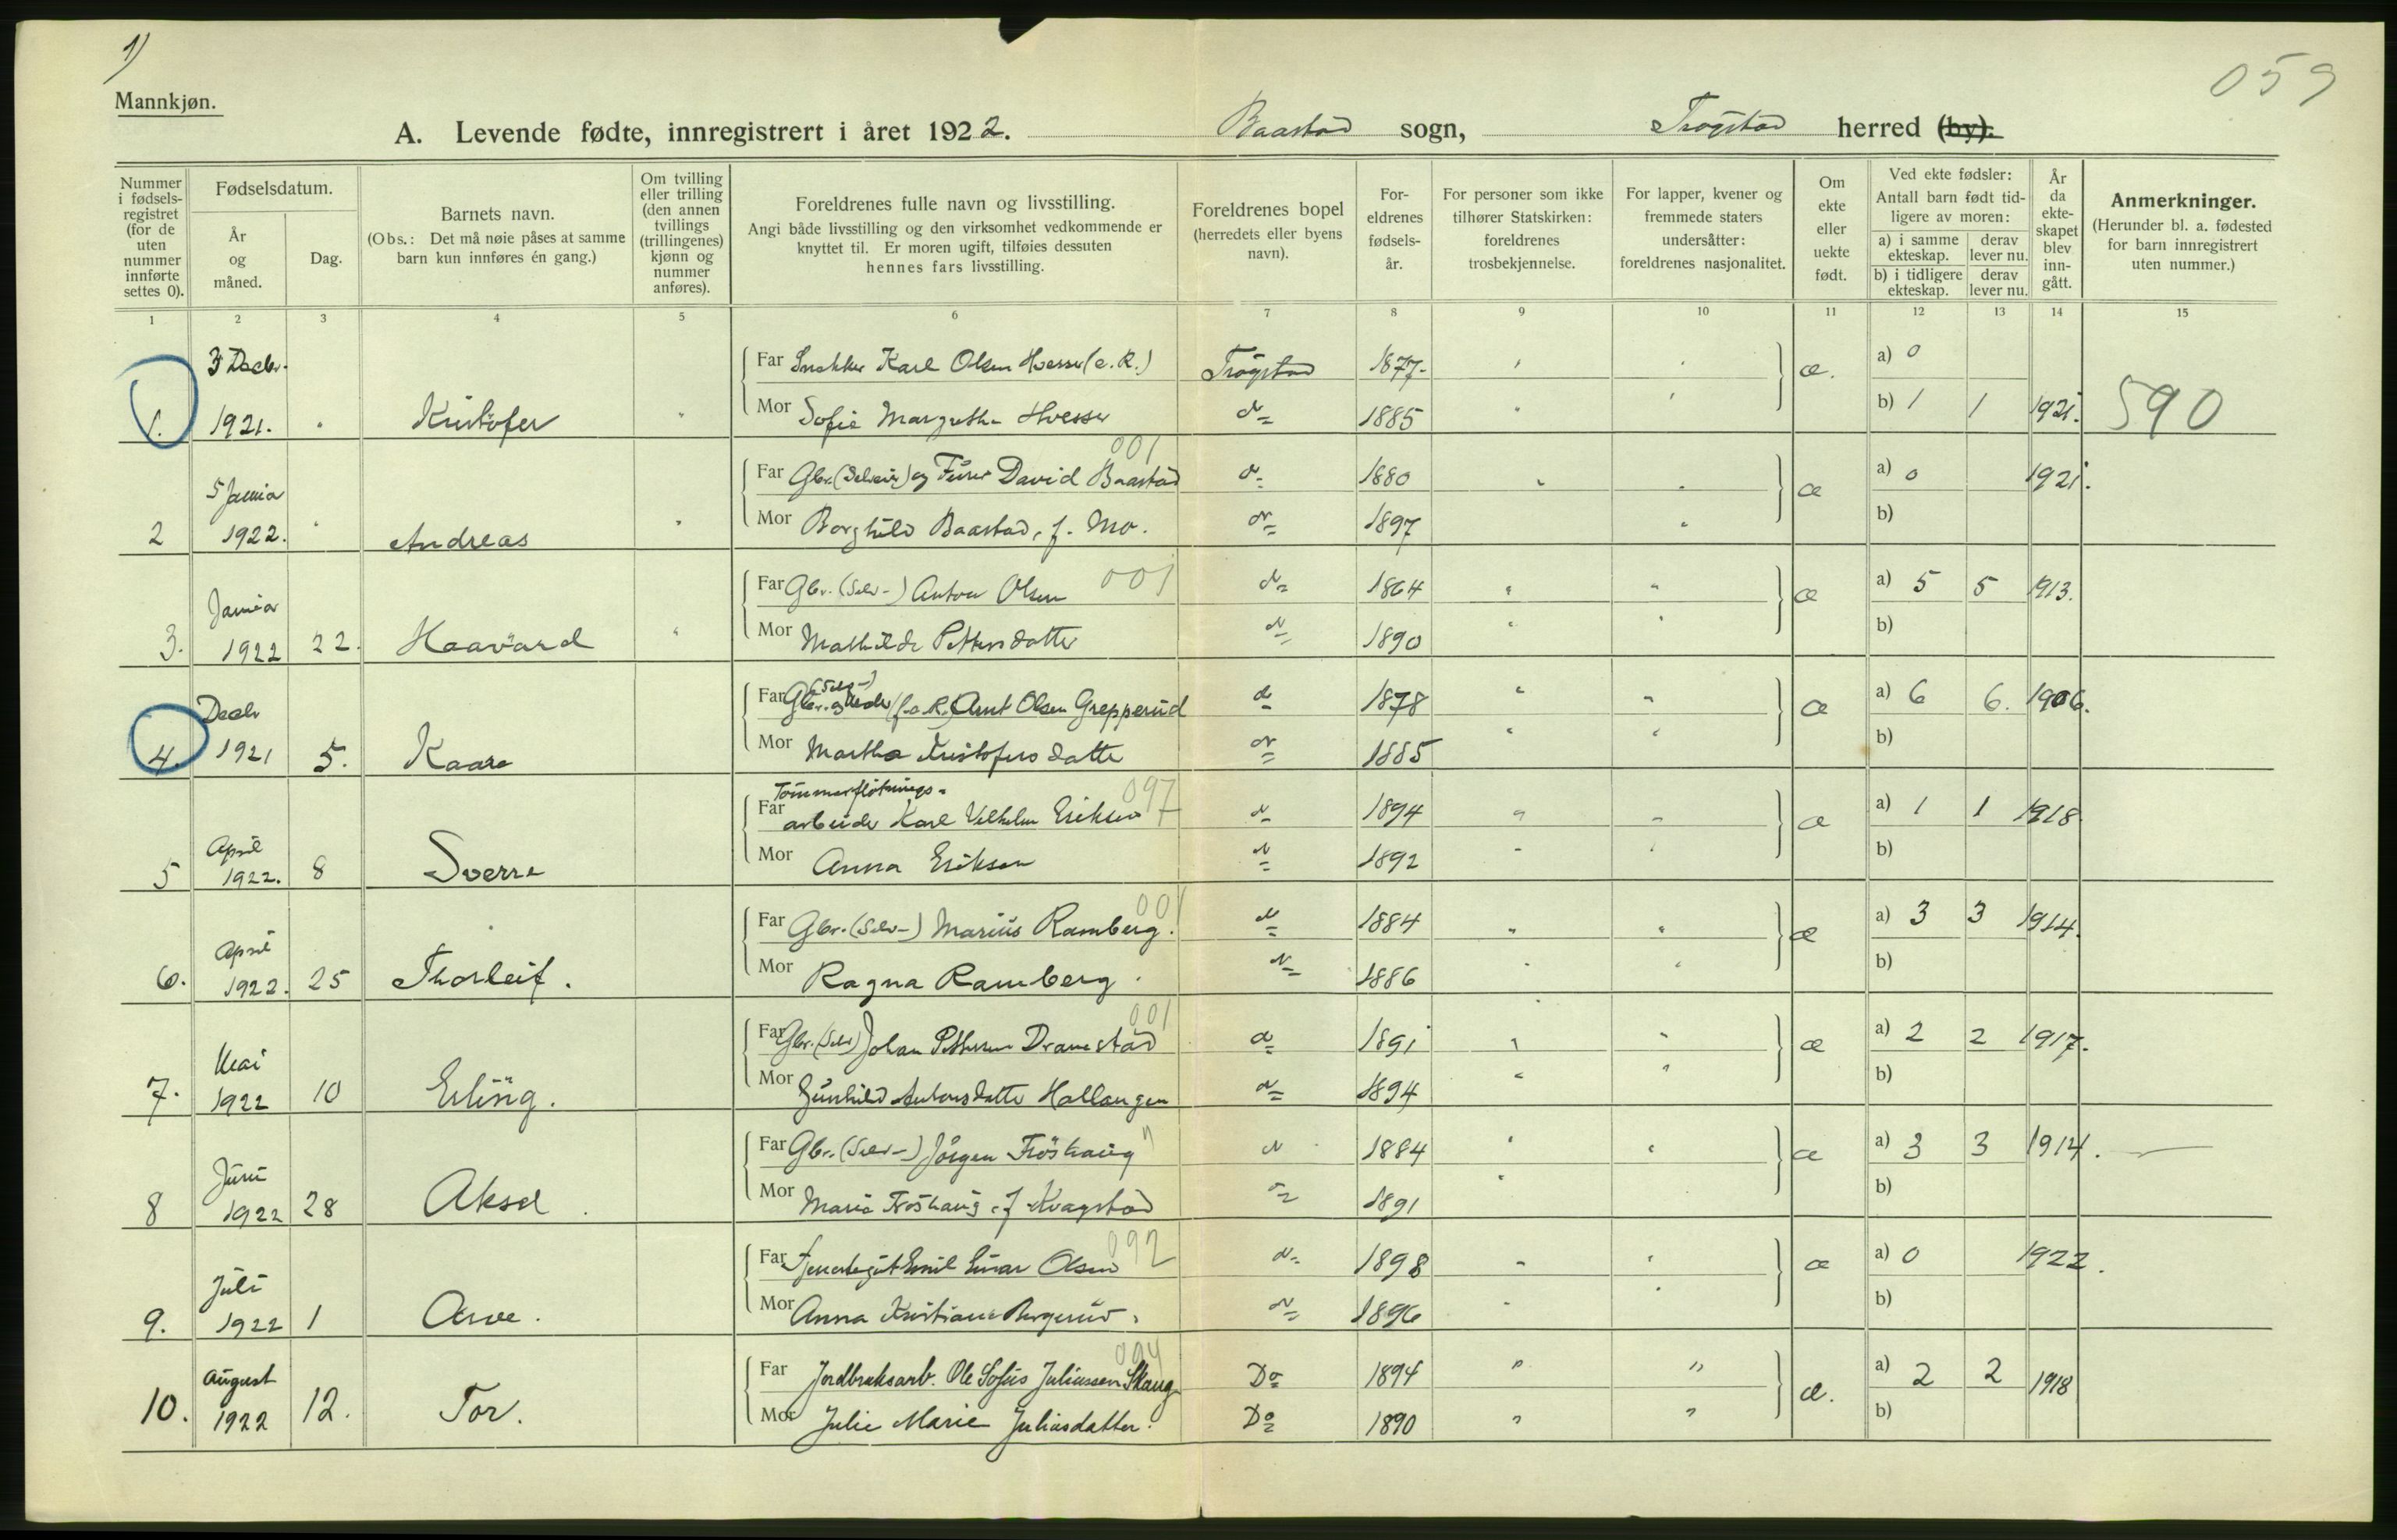 1)
059
Mannkjøn.
A. Levende fødte, innregistrert i året 1922. Baastad sogn, Trøgstad herred (by).
Nummer i fødsels-registret (for de uten nummer innførte settes 0).
Fødselsdatum.
År og måned.
Dag.
Barnets navn.
(Obs.: Det må nøie påses at samme barn kun innføres én gang.)
Om tvilling eller trilling (den annen tvillings (trillingenes) kjønn og nummer anføres).
Foreldrenes fulle navn og livsstilling.
Angi både livsstilling og den virksomhet vedkommende er knyttet til. Er moren ugift, tilføies dessuten hennes fars livsstilling.
Foreldrenes bopel (herredets eller byens navn).
For-eldrenes fødsels-år.
For personer som ikke tilhører Statskirken: foreldrenes trosbekjennelse.
For lapper, kvener og fremmede staters undersåtter: foreldrenes nasjonalitet.
Om ekte eller uekte født.
Ved ekte fødsler:
Antall barn født tid-ligere av moren:
a) i samme ekteskap.
derav lever nu.
b) i tidligere ekteskap.
derav lever nu.
År da ekte-skapet blev inn-gått.
Anmerkninger.
(Herunder bl. a. fødested for barn innregistrert uten nummer.)
1 2 3 4 5 6 7 8 9 10 11 12 13 14 15
3 Decbr. Far Snekker Karl Olsen (e. R.) Trøgstad 1877 " " æ. a) 0
1. 1921. " Kristofer " Mor Sofie Margrethe 1885 " " b) 1 1 1921. 590
001
5 Januar Far Gbr. (Selveier) og David Baastad d= 1880 " " æ a) 0 1921.
2 1922. " Andreas " Mor Borghild Baastad, f. Mo. d= 1897 " b)
Januar Far Gbr. (Selv-) Anton Olsen 001 d= 1864 " " æ a) 5 5 1913.
3. 1922 22. Haavard " Mor Mathilde Pettersdatter d= 1890 " " b)
(Selv-)
Decbr Far Gbr. og Arnt Olsen Grepperud d= 1878 " " æ a) 6 6. 1906.
4. 1921 5. Kaare Mor Martha Kristofersdatter d= 1885 " " b)
Tømmerfløtnings- 097
Far arbeider Karl Vilhelm Eriksen d= 1894 " " æ a) 1 1 1918
5 April 1922. 8 Sverre Mor Anna Eriksen d= 1892 " " b)
001
April Far Gbr. (Selv-) Marius Ramberg. d= 1884 " " æ a) 3 3 1914.
6. 1922. 25 Thorleif. Mor Ragna Ramberg. d= 1886 " " b)
001
Mai Far Gbr. (Selv) Johan Pettersen Dramstad d= 1891 " " æ a) 2 2 1917.
7. 1922 10 Erling. Mor Gunhild Antonsdatter Hallangen d= 1894 " " b)
Juni Far Gbr. (Selv-) Jørgen Frøshaug " d 1884 " " æ a) 3 3 1914. —
8 1922 28 Aksel. Mor Marie Frøshaug, f. Kvagstad d= 1891 " b)
092
Juli Far Emil Einar Olsen d= 1898 " " æ a) 0 1922.
9. 1922 1 Arve. Mor Anna Kristiane d= 1896 " " b)
094
August Far Jordbruksarb. Ole Sofus Juliussen Skaug Do 1894 " " æ. a) 2 2 1918
10. 1922 12. Tor. Mor Julie Marie Juliusdatter. Do 1890 " " b)